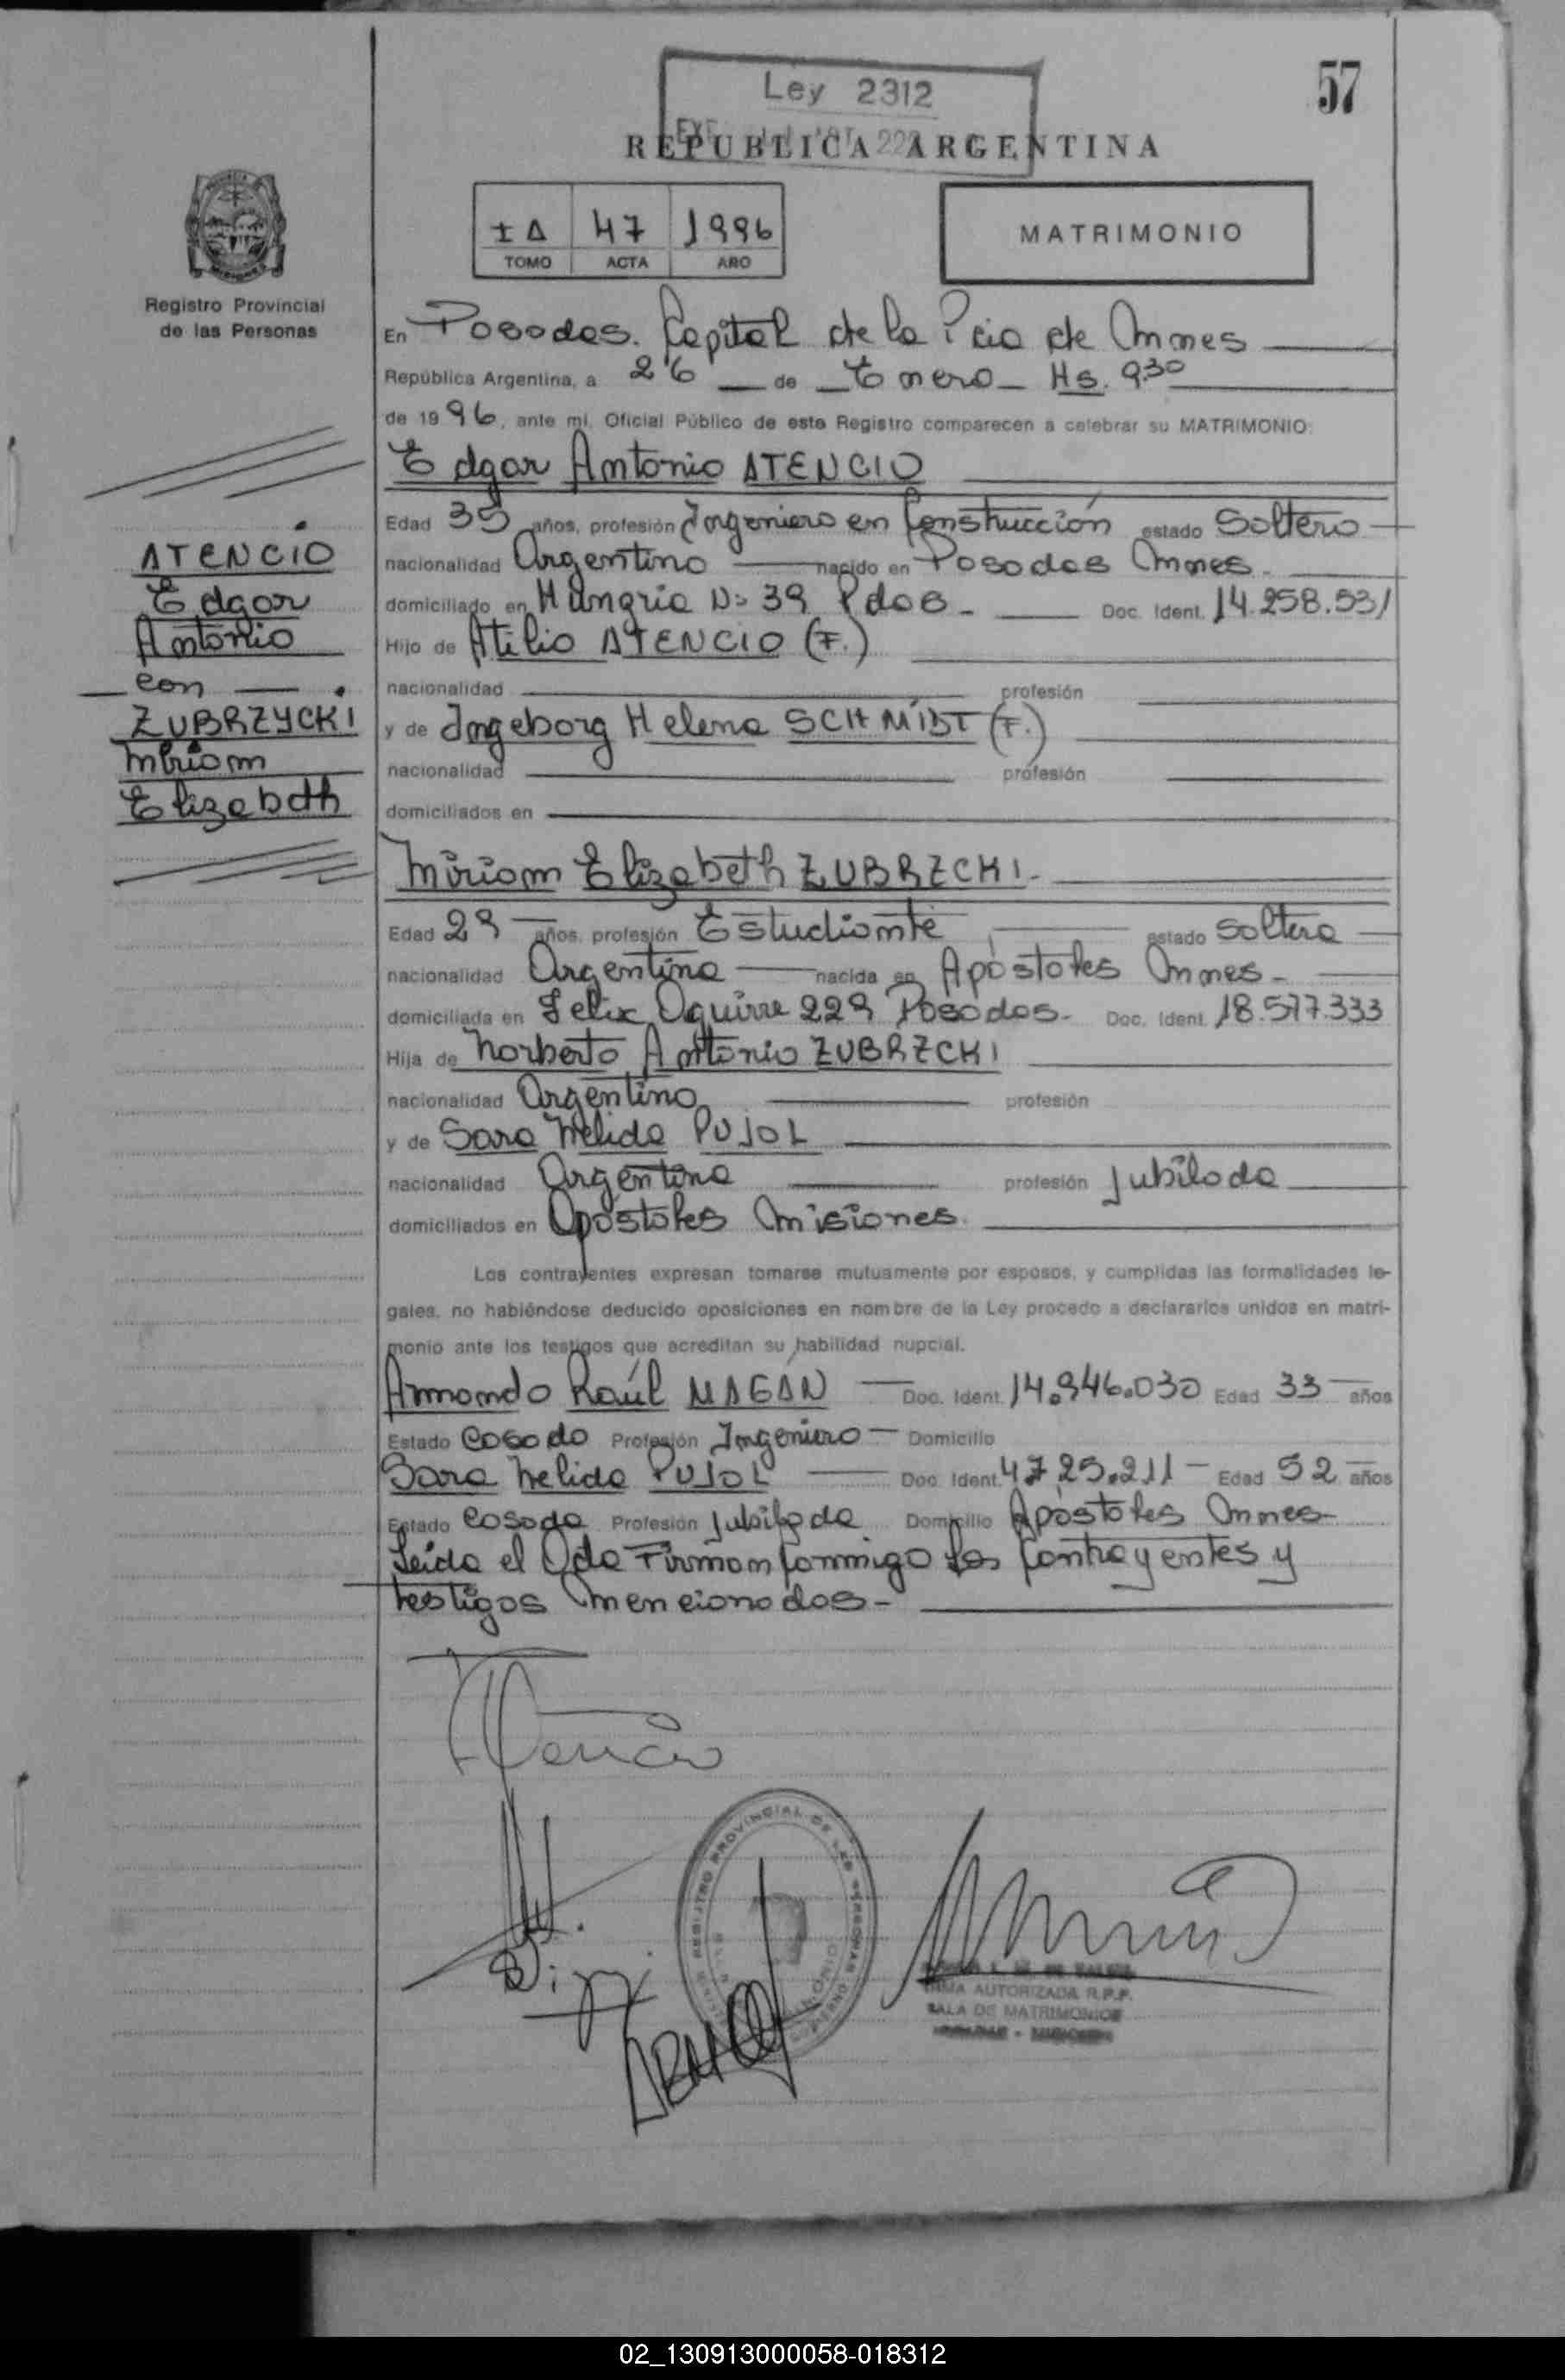 57
Ley 2312
REPUBLICA ARGENTINA
47 1996
TOMO ACTA AÑO
MATRIMONIO
Registro Provincial
de las Personas
En Posadas. Capital de la Pcia de Mnes
República Argentina, a 26 de Enero Hs. 9.30
de 1996, ante mí, Oficial Público de este Registro comparecen a celebrar su MATRIMONIO:
Edgar Antonio ATENCIO
Edad 35 años, profesión Ingeniero en Construcción estado Soltero
nacionalidad Argentino nacido en Posadas Mnes.
domiciliado en Hungria Nº 39 Pdas - Doc. Ident. 14.258.531
Hijo de Atilio ATENCIO (F.)
nacionalidad profesión
y de Ingeborg Helena SCHMIDT (F.)
nacionalidad profesión
domiciliados en
ATENCIO
Edgar
Antonio
con
ZUBRZYCKI
Miriam
Elizabeth
Miriam Elizabeth ZUBRZCKI.-
Edad 29 años, profesión Estudiante estado Soltera
nacionalidad Argentina nacida en Apóstoles Mnes-
domiciliada en Felix Aguirre 229 Posadas- Doc. Ident. 18.577.333
Hija de Norberto Antonio ZUBRZCKI
nacionalidad Argentino profesión
y de Sara Nelida PUJOL
nacionalidad Argentina profesión Jubilada
domiciliados en Apóstoles Misiones.
Los contrayentes expresan tomarse mutuamente por esposos, y cumplidas las formalidades le-
gales, no habiéndose deducido oposiciones en nombre de la Ley procedo a declararlos unidos en matri-
monio ante los testigos que acreditan su habilidad nupcial.
Armando Raúl MAGAN Doc. Ident. 14.946.030 Edad 33 años
Estado Casado Profesión Ingeniero Domicilio
Sara Nelida PUJOL Doc. Ident. 4.725.211 - Edad 52 años
Estado Casada Profesión Jubilada Domicilio Apóstoles Mnes-
Leida el Acta Firman conmigo los Contrayentes y
testigos mencionados-
REGISTRO PROVINCIAL DE LAS PERSONAS
FIRMA AUTORIZADA R.P.P.
SALA DE MATRIMONIOS
02_130913000058-018312